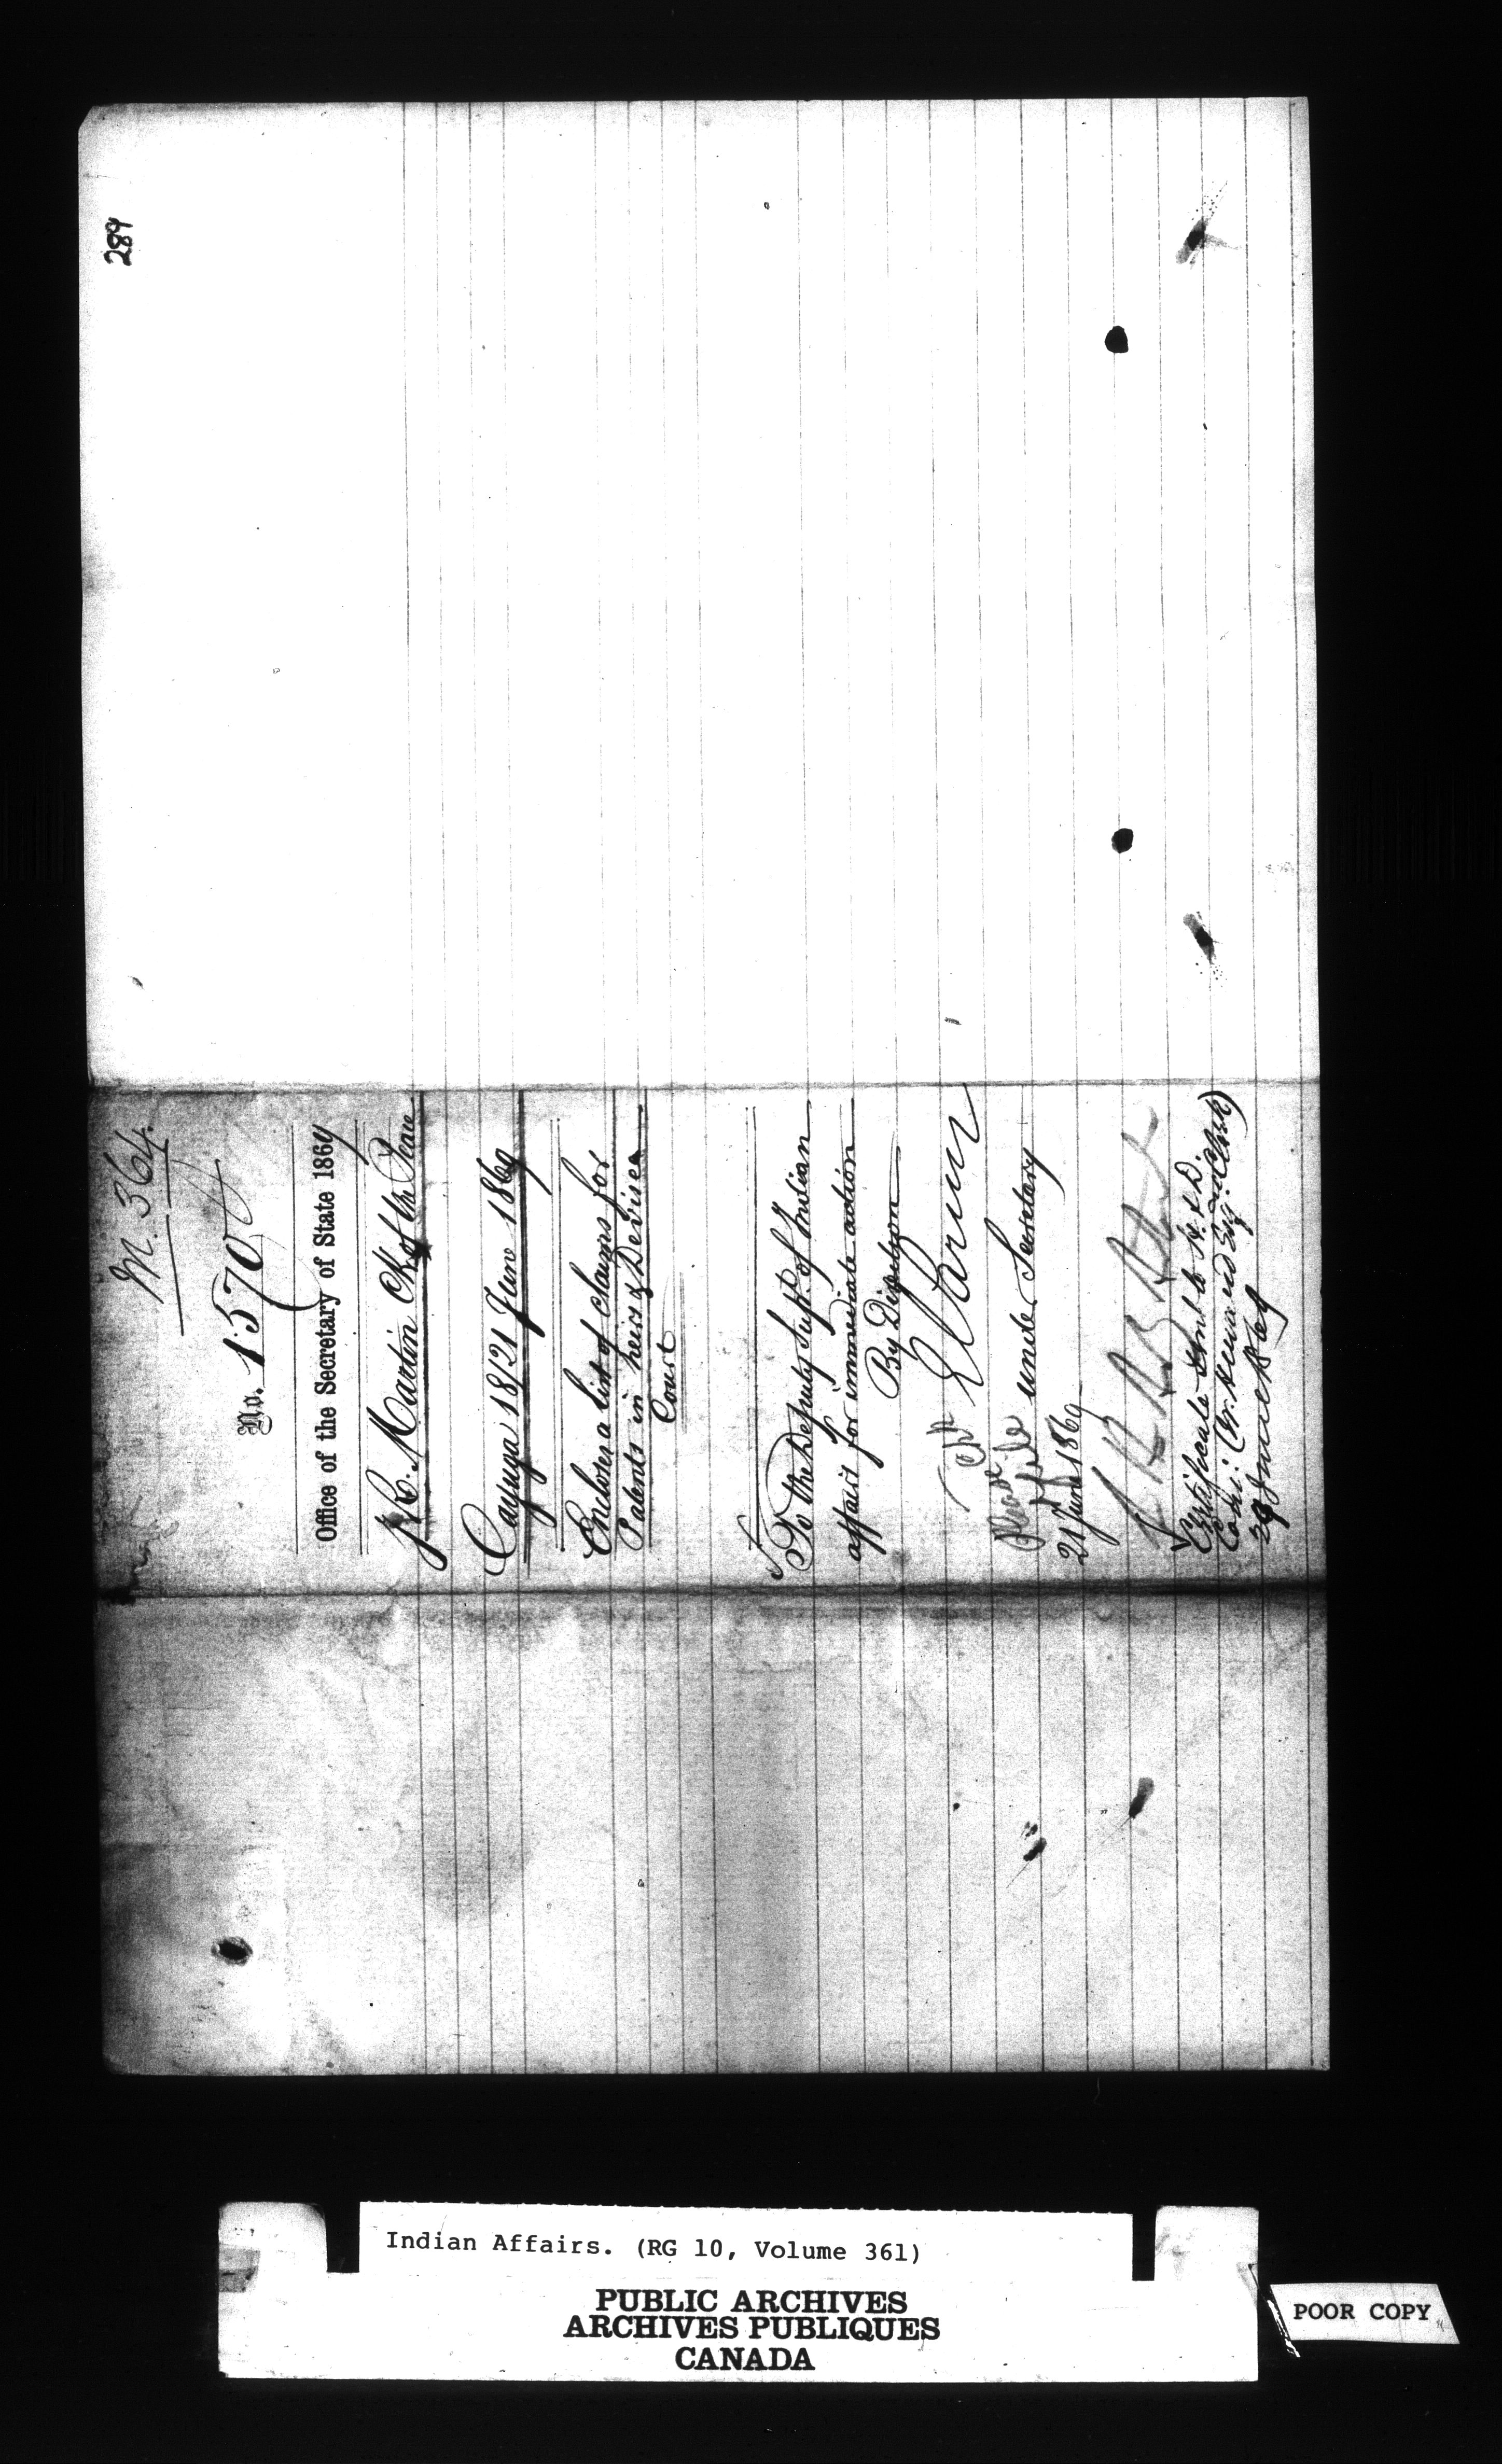 289
M. 364.
No. 1570
Office of the Secretary of State 1869
J R. Martin Ck of the Peace
Cayuga 18/21 June 1869
Encloses a list of claims for
Patents in heirs & Devisee
Court
To the Deputy Supt. of Indian
affairs for immediate action
By Direction
E Parent
under Secretary
Please
file
21 June 1869
Certificate sent to H. & D.
29 June 1869
Indian Affairs. (RG 10, Volume 361)
PUBLIC ARCHIVES
ARCHIVES PUBLIQUES
CANADA
POOR COPY